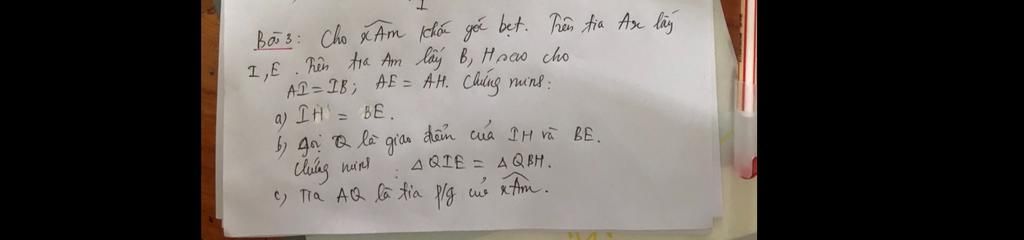 I
Bài 3: Cho xAm khác góc bẹt. Trên tia Ax lấy
I, E. Trên tia Am lấy B, H sao cho
AI = IB; AE = AH. Chứng minh:
a) IH = BE.
b) Gọi Q là giao điểm của IH và BE.
Chứng minh: △QIE = △QBH.
c) Tia AQ là tia p/g của xAm.